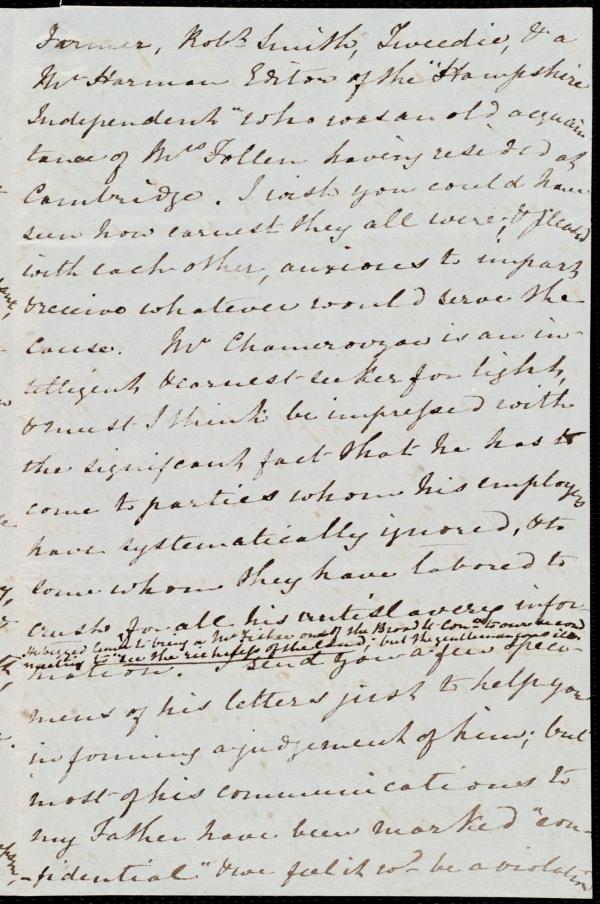 Farmer, Robt. Smith, Tweedie, & a
Mr Harman Editor of the "Hampshire
Independent" who was an old acquain-
tance of Mrs Follen having resided at
Cambridge. I wish you could have
seen how earnest they all were, & pleased
with each other, anxious to impart
& receive whatever would serve the
cause. Mr Chamerovzow is an in-
telligent & earnest seeker for light,
& must I think be impressed with
the significant fact that he has to
come to parties whom his employers
have systematically ignored, & to
some whom they have labored to
crush, for all his antislavery infor-
He begged leave to bring a Mr Fisher one of the Broad St Comee. to our second
meeting to "see the richness of the land", but the gentleman was ill
mation. I send you a few speci-
mens of his letters just to help you
in forming a judgement of him; but
most of his communications to
my Father have been marked "con-
-fidential" & we feel it wd. be a violation